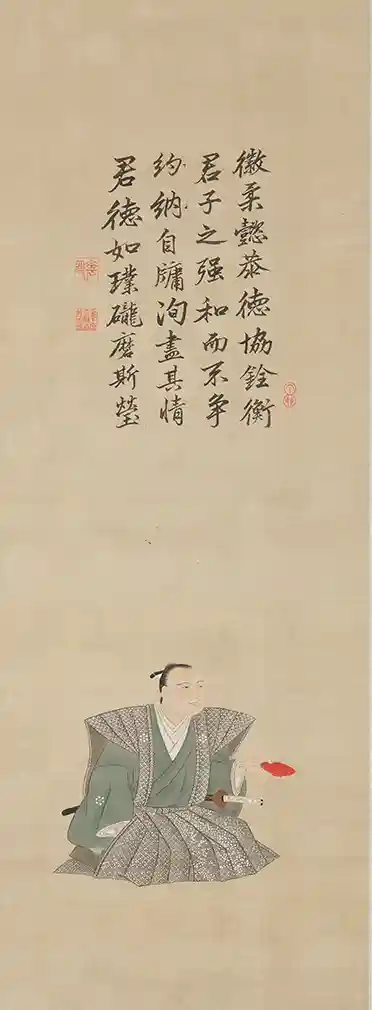 徽柔懿恭德協銓衡
君子之强和而不争
約納自牖洵盡其情
君德如璞礲磨斯瑩